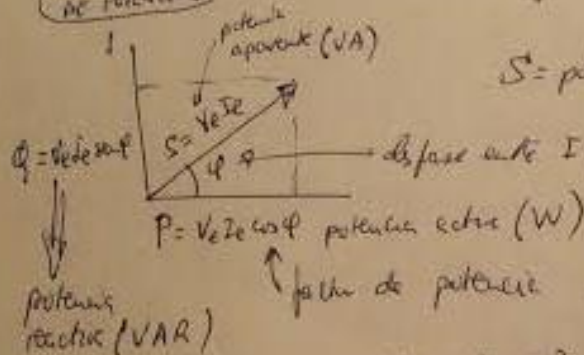 DE POTENCIA
potencia
aparente (VA)
S = VeIe
S = po
Q = VeIe senφ
φ
desfase entre I
P = VeIe cosφ potencia activa (W)
factor de potencia
potencia
reactiva (VAR)